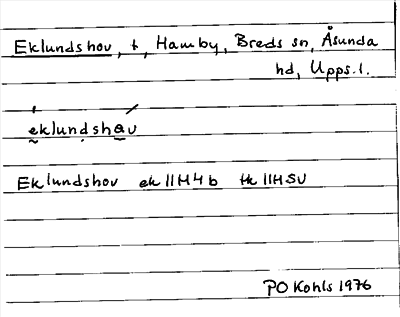 Eklundshov, t, Hamby, Breds sn, Åsunda
hd, Upps. l.
eklundshav
Eklundshov ek 11H4b tk 11HSV
PO Kohls 1976